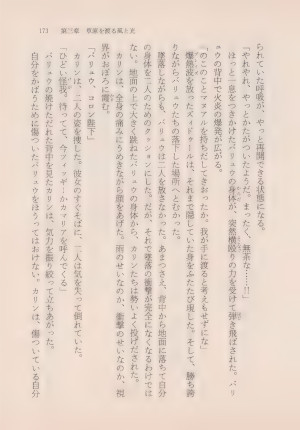 173　第三章　草原を渡る風と光
れていた呼吸が、やっと再開できる状態になる。
「やれやれ、やっとかたがついたようだ。まったく、無茶な……!!」
ほっと一息をつきかけたバリュウの身体が、突然横殴りの力を受けて弾き飛ばされた。バリ
ュウの背中で火炎の爆発が広がる。
「のこのことマニュアルを持ちだしてきおったか。我が手に渡ると考えもせずにな」
爆熱波を放ったズィドゥールは、それまで隠していた身をふたたび現した。そして、勝ち誇
りながらバリュウたちの落下した場所へとむかった。
落下しながらも、バリュウは二人を放さなかった。あまつさえ、背中から地面に落ちて自分
の身体を二人のためのクッションにした。だが、それで墜落の衝撃が完全になくなるわけでは
ない。地面の上で大きく跳ねたバリュウの身体から、カリンたちは勢いよく投げだされた。
カリンは、全身の痛みにうめきながら顔をあげた。雨のせいなのか、衝撃のせいなのか、視
界がおぼろに霞む。
「バリュウ、コロン陛下」
カリンは、二人の姿を捜した。彼女のすぐそばに、二人は気を失って倒れていた。
「ひどい怪我。待ってて、今フィッダーかカマリアを呼んでくる」
バリュウの焼けただれた背中を見たカリンは、気力を振り絞って立ちあがった。
自分をかばうために傷ついたバリュウをほうってはおけない。カリンは、傷ついている自分